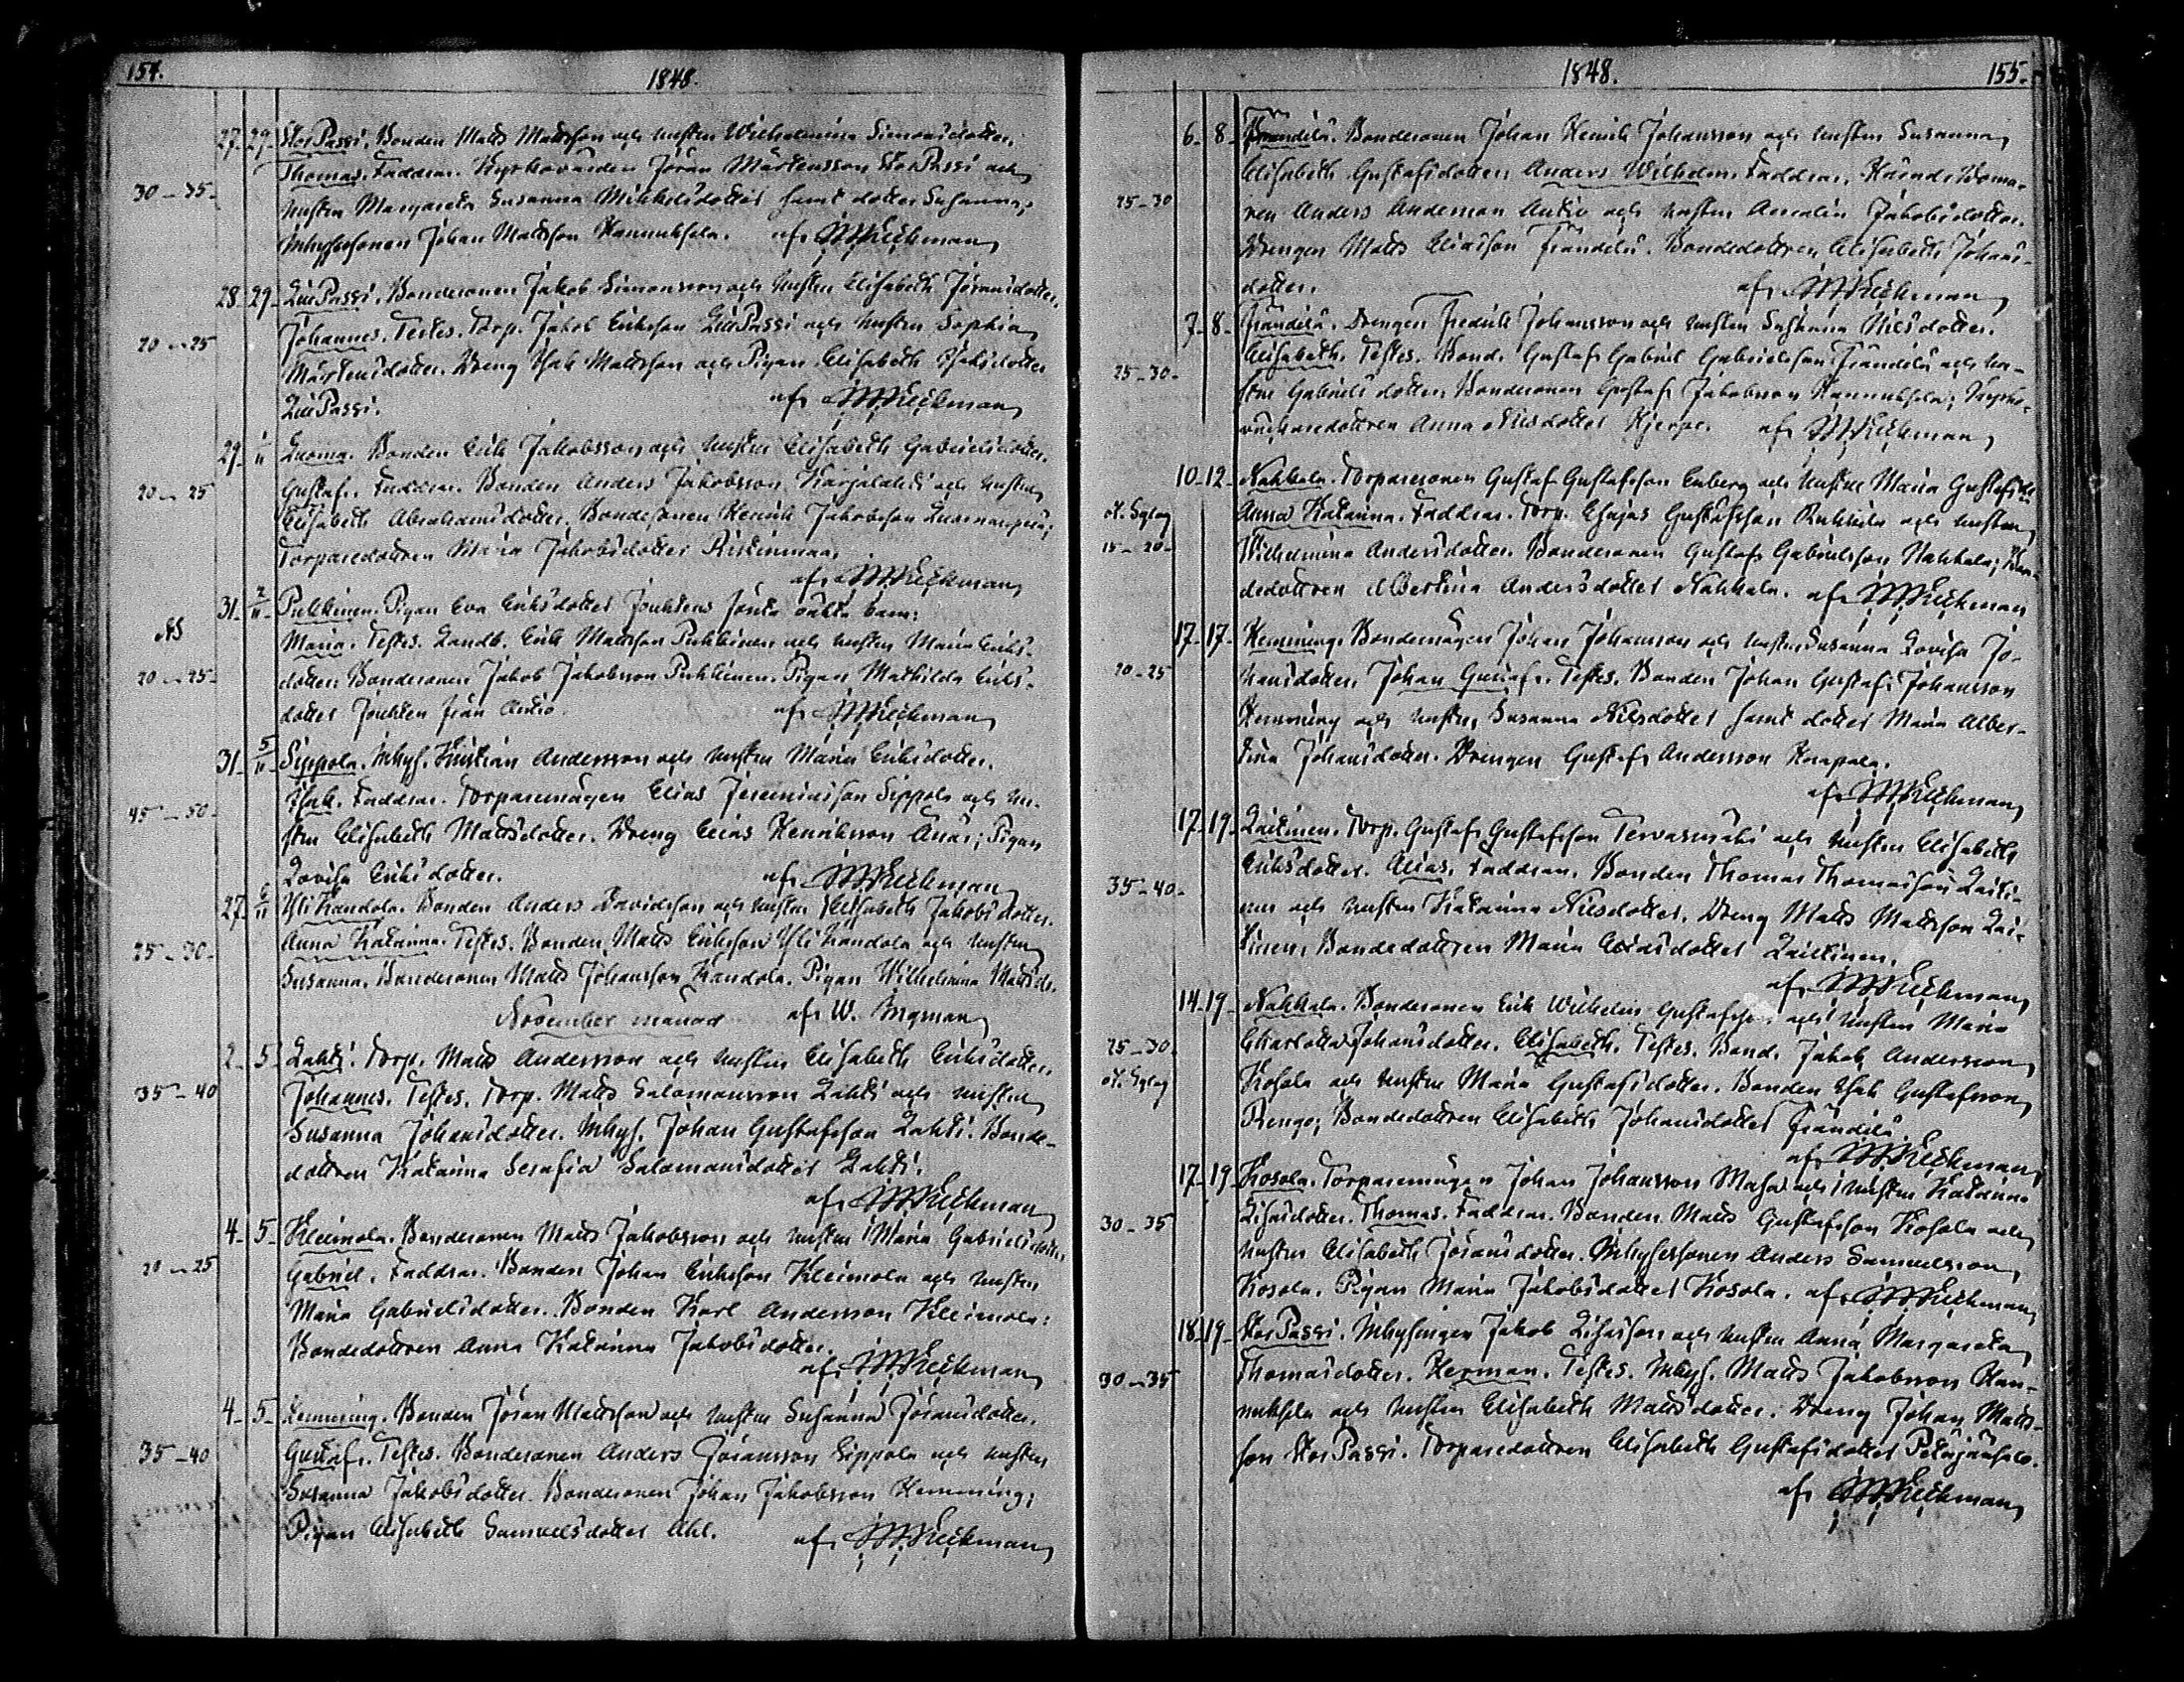 154.
1848.
27. 29. Stor Passi. Bonden Matts Mattsson och hustru Wilhelmina Simonsdotter.
Thomas. Faddrar. Kyrkovärden Jöran Mårtensson Stor Passi och
30-35. hustru Margareta Susanna Mikkelsdotter samt dotter Susanna;
Inhysessonen Johan Mattsson Hannuksela. af
28. 29. Liu Passi. Bondesonen Jakob Simonsson och hustru Elisabeth Jöransdotter.
20-25 Johannes. Testes. Torp. Jakob Eriksson Liu Passi och hustru Sophia
Mårtensdotter. Dreng Isak Mattsson och Pigan Elisabeth Isaksdotter
Liu Passi. af
29. 1/11 Luoma. Bonden Erik Jakobsson och hustru Elisabeth Gabrielsdotter.
20-25 Gustaf. Faddrar. Bonden Anders Jakobsson Karjalahti och hustru
Elisabeth Abrahamsdotter. Bondesonen Henrik Jakobsson
Torparedottren Maria Jakobsdotter
af
31. 2/11 Pukkinen. Pigan Eva Eriksdotter Jouktens förita oäkta barn:
Maria. Testes. Landb. Erik Mattsson Pukkinen och hustru Maria Eriks-
20-25. dotter. Bondesonen Jakob Jakobsson Pukkinen. Pigan Mathilda Eriks-
dotter från Autio. af
31. 5/11 Sippola. Inhys. Kristian Andersson och hustru Maria Eriksdotter.
45-50. Isak. Faddrar. Torparemågen Elias Jeremiasson Sippola och hu-
stru Elisabeth Mattsdotter. Dreng Elias Henriksson Anäs; Pigan
Lovisa Eriksdotter. af
27. 6/11 Yli Kandola. Bonden Anders Davidsson och hustru Elisabeth Jakobsdotter.
25-30. Anna Katarina. Testes. Bonden Matts Eriksson Yli Kandola och hustru
Susanna. Bondesonen Matts Johansson Kandola. Pigan Wilhelmina Mattsdr.
November månad af W. Bryman
2. 5. Lahti. Torp. Matts Andersson och hustru Elisabeth Eriksdotter.
35-40 Johannes. Testes. Torp. Matts Salomonsson Lahti och hustru
Susanna Johansdotter. Inhys. Johan Gustafsson Lahti. Bonde-
dottren Katarina Serafia Salomonsdotter Lahti.
af
4. 5. Kleimola. Bondesonen Matts Jakobsson och hustru Maria Gabrielsdotter
20-25 Gabriel. Faddrar. Bonden Johan Eriksson Kleimola och hustru
Maria Gabrielsdotter. Bonden Karl Andersson Kleimola:
Bondedottren Anna Katarina Jakobsdotter.
af
4. 5. Hemming. Bonden Jöran Mattsson och hustru Susanna Jöransdotter.
35-40 Gustaf. Testes. Bondesonen Anders Göransson Sippola och hustru
Susanna Jakobsdotter. Bondesonen Johan Jakobsson Hemming;
Pigan Elisabeth Samuelsdotter Ahl. af
1848.
155.
6. 8. Frändilä. Bondesonen Johan Henrik Johansson och hustru Susanna
Elisabeth Gustafsdotter. Anders Wilhelm. Faddrar.
25-30 Anders Andersson Autio och hustru Amalia Jakobsdotter.
Drengen Matts Eliasson Frändilä. Bondedottren Elisabeth Johans-
dotter. af
7. 8. Frändilä. Drengen Fredrik Johansson och hustru Susanna Nilsdotter.
Elisabeth. Testes. Bond. Gustaf Gabriel Gabrielsson Frändilä och hu-
25-30. stru Gabrielsdotter. Bondesonen Gustaf Jakobsson Hannuksela;
Anna Nilsdotter Hjerpe. af
10. 12. Nahkala. Torparesonen Gustaf Gustafsson Enberg och hustru Maria Gustafsdr
Anna Katarina. Faddrar. Torp. Esajas Gustafsson och hustru
15-20. Wilhelmina Andersdotter. Bondesonen Gustaf Gabrielsson Nahkala; Bon-
dedottren Albertina Andersdotter Nahkala. af
17. 17. Hemming. Bondemågen Johan Johansson och hustru Susanna Lovisa Jo-
20-25 hansdotter. Johan Gustaf. Testes. Bonden Johan Gustaf Johansson
Hemming och hustru Susanna Nilsdotter samt dotter Maria Alber-
tina Johansdotter. Drengen Gustaf Andersson Haapala.
af
17. 19. Laitinen. Torp. Gustaf Gustafsson Tervasmäki och hustru Elisabeth
35-40. Eriksdotter. Elias. Faddrar. Bonden Thomas Thomasson Laiti-
nen och hustru Katarina Nilsdotter. Dreng Matts Mattsson Lai-
tinen, Bondedottren Maria Eliasdotter Laitinen.
af
14. 19. Nahkala. Bondesonen Erik Wilhelm Gustafsson och hustru Maria
25-30. Charlotta Johansdotter. Elisabeth. Testes. Bond. Jakob Andersson
Kosola och hustru Maria Gustafsdotter. Bonden Isak Gustafsson
Rengo; Bondedottren Elisabeth Johansdotter Frändilä.
af
17. 19. Kosola. Torparemågen Johan Johansson Masa och hustru Katarina
30-35 Lisasdotter. Thomas. Faddrar. Bonden Matts Gustafsson Kosola och
hustru Elisabeth Jöransdotter. Inhysessonen Anders Samuelsson
Kosola. Pigan Maria Jakobsdotter Kosola. af
18. 19. Stor Passi. Inhysingen Jakob och hustru Anna Margareta
30-35 Thomasdotter. Herman. Testes. Inhys. Matts Jakobsson Han-
nuksela och hustru Elisabeth Mattsdotter. Dreng Johan Matts-
son Stor Passi. Torparedottren Elisabeth Gustafsdotter Petäjäasalo.
af